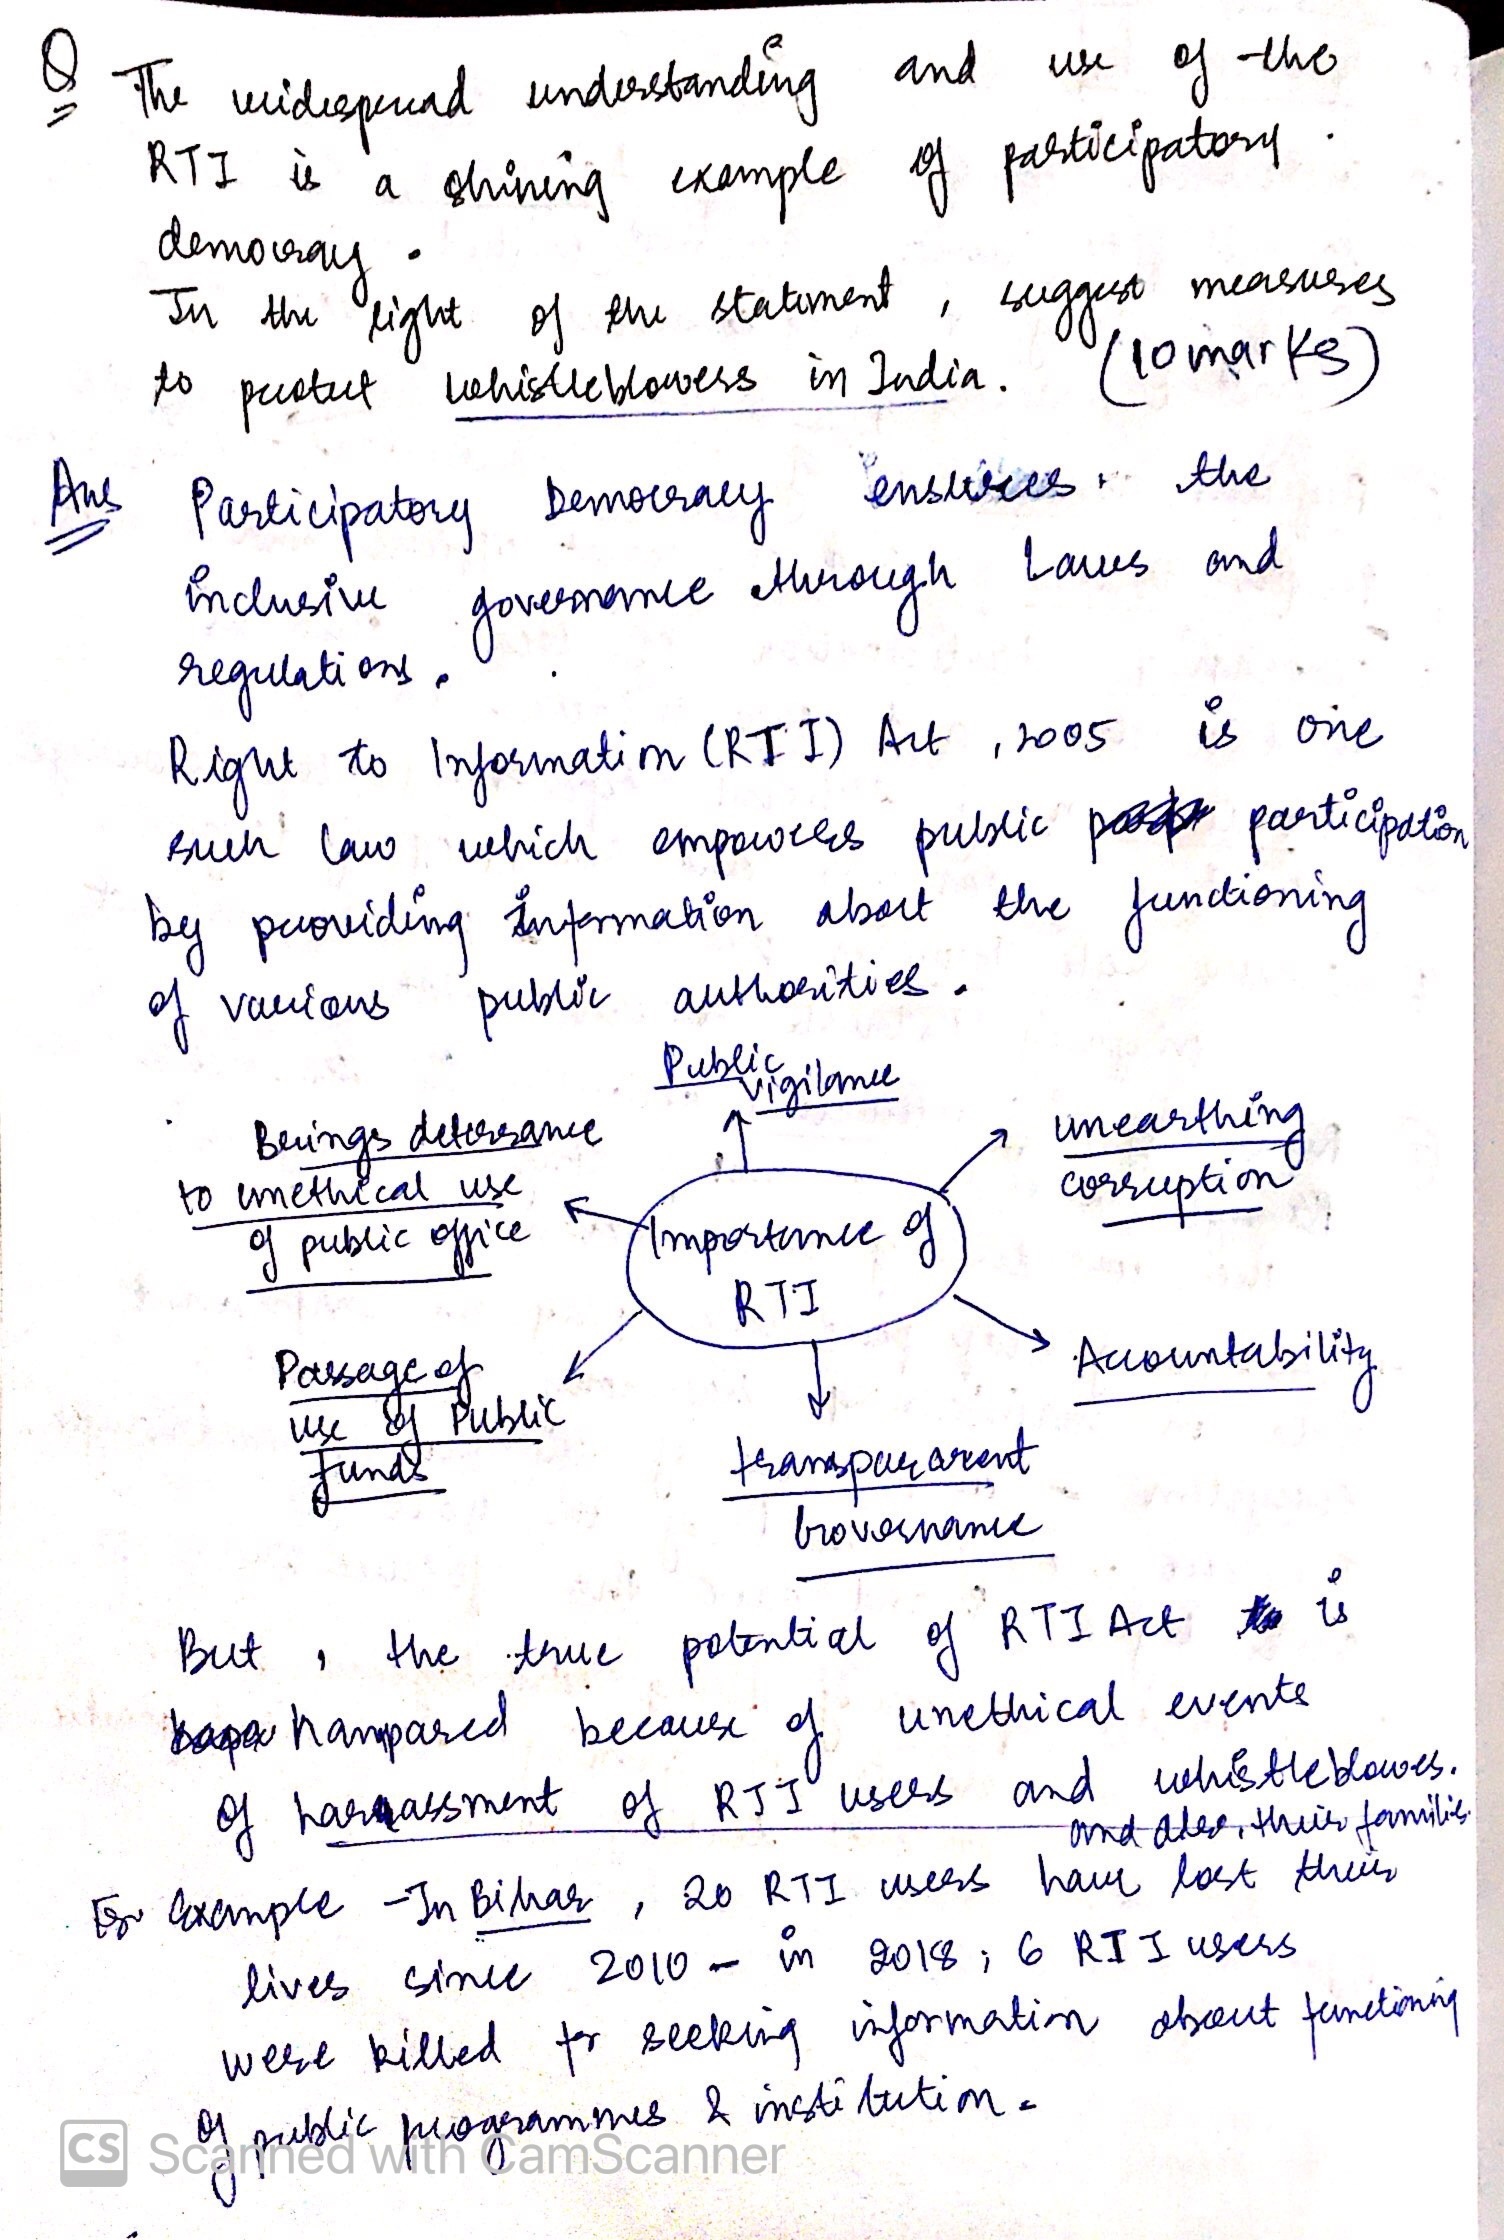 Q The widespread understanding and use of the
RTI is a shining example of participatory
democracy.
In the light of the statement, suggest measures
to protect whistleblowers in India. (10 marks)
Ans Participatory Democracy ensures the
inclusive governance through Laws and
regulations.
Right to Information (RTI) Act, 2005 is one
such law which empowers public participation
by providing Information about the functioning
of various public authorities.
Public
vigilance
Brings deterrance
to unethical use
of public office
unearthing
corruption
Importance of
RTI
Passage of
use of Public
funds
Accountability
transpararent
Governance
But, the true potential of RTI Act is
hampared because of unethical events
of harrassment of RTI users and whistleblowers.
and also, their families.
For Example - In Bihar, 20 RTI users have lost their
lives since 2010 - in 2018; 6 RTI users
were killed for seeking information about functioning
of public programmes & institution.
CS Scanned with CamScanner